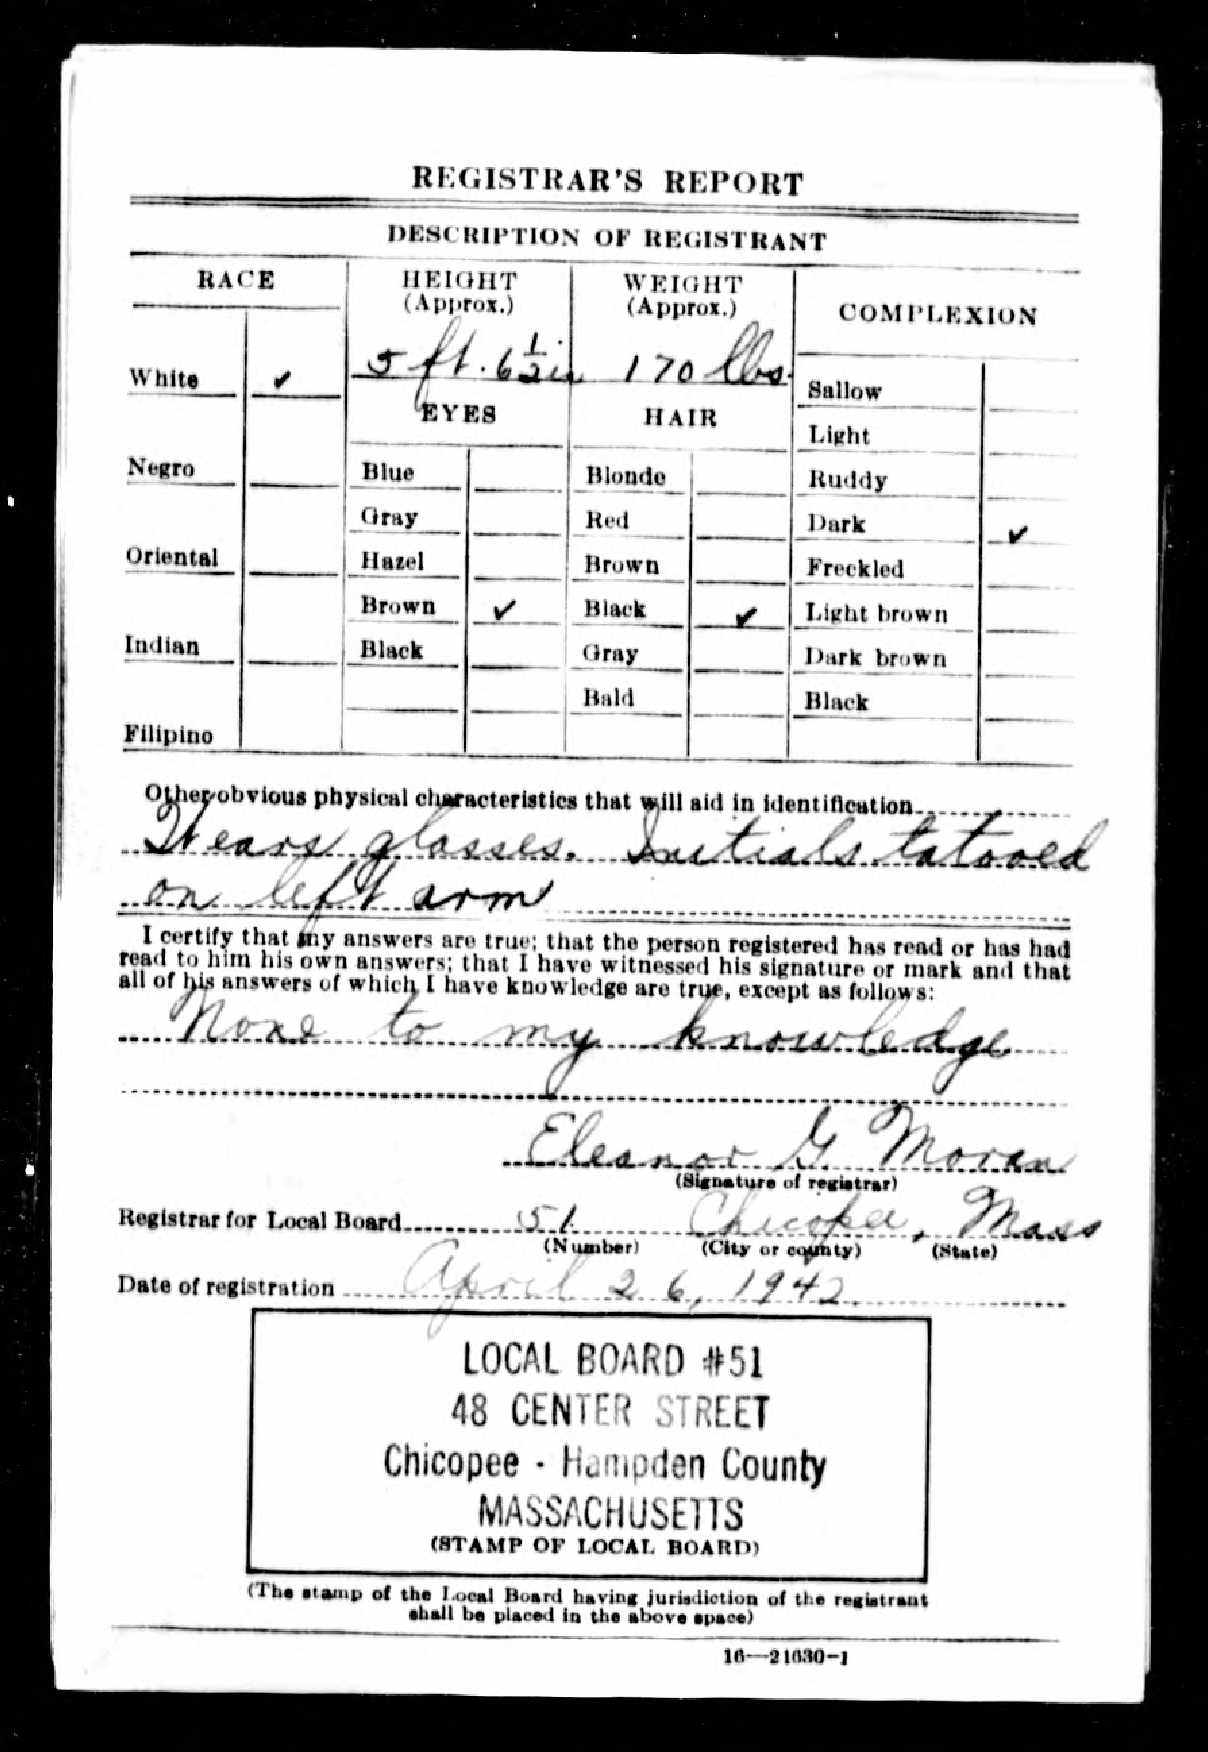 REGISTRAR'S REPORT
DESCRIPTION OF REGISTRANT
RACE
HEIGHT
(Approx.)
WEIGHT
(Approx.)
COMPLEXION
5 ft. 6 1/2 in
170 lbs.
White ✓
Negro
Oriental
Indian
Filipino
EYES
Blue
Gray
Hazel
Brown ✓
Black
HAIR
Blonde
Red
Brown
Black ✓
Gray
Bald
Sallow
Light
Ruddy
Dark ✓
Freckled
Light brown
Dark brown
Black
Other obvious physical characteristics that will aid in identification
Wears glasses. Initials tatooed
on left arm
I certify that my answers are true; that the person registered has read or has had
read to him his own answers; that I have witnessed his signature or mark and that
all of his answers of which I have knowledge are true, except as follows:
None to my knowledge
Eleanor G. Moran
(Signature of registrar)
Registrar for Local Board 51 Chicopee, Mass
(Number) (City or county) (State)
Date of registration April 26, 1942
LOCAL BOARD #51
48 CENTER STREET
Chicopee - Hampden County
MASSACHUSETTS
(STAMP OF LOCAL BOARD)
(The stamp of the Local Board having jurisdiction of the registrant
shall be placed in the above space)
16—21630-1